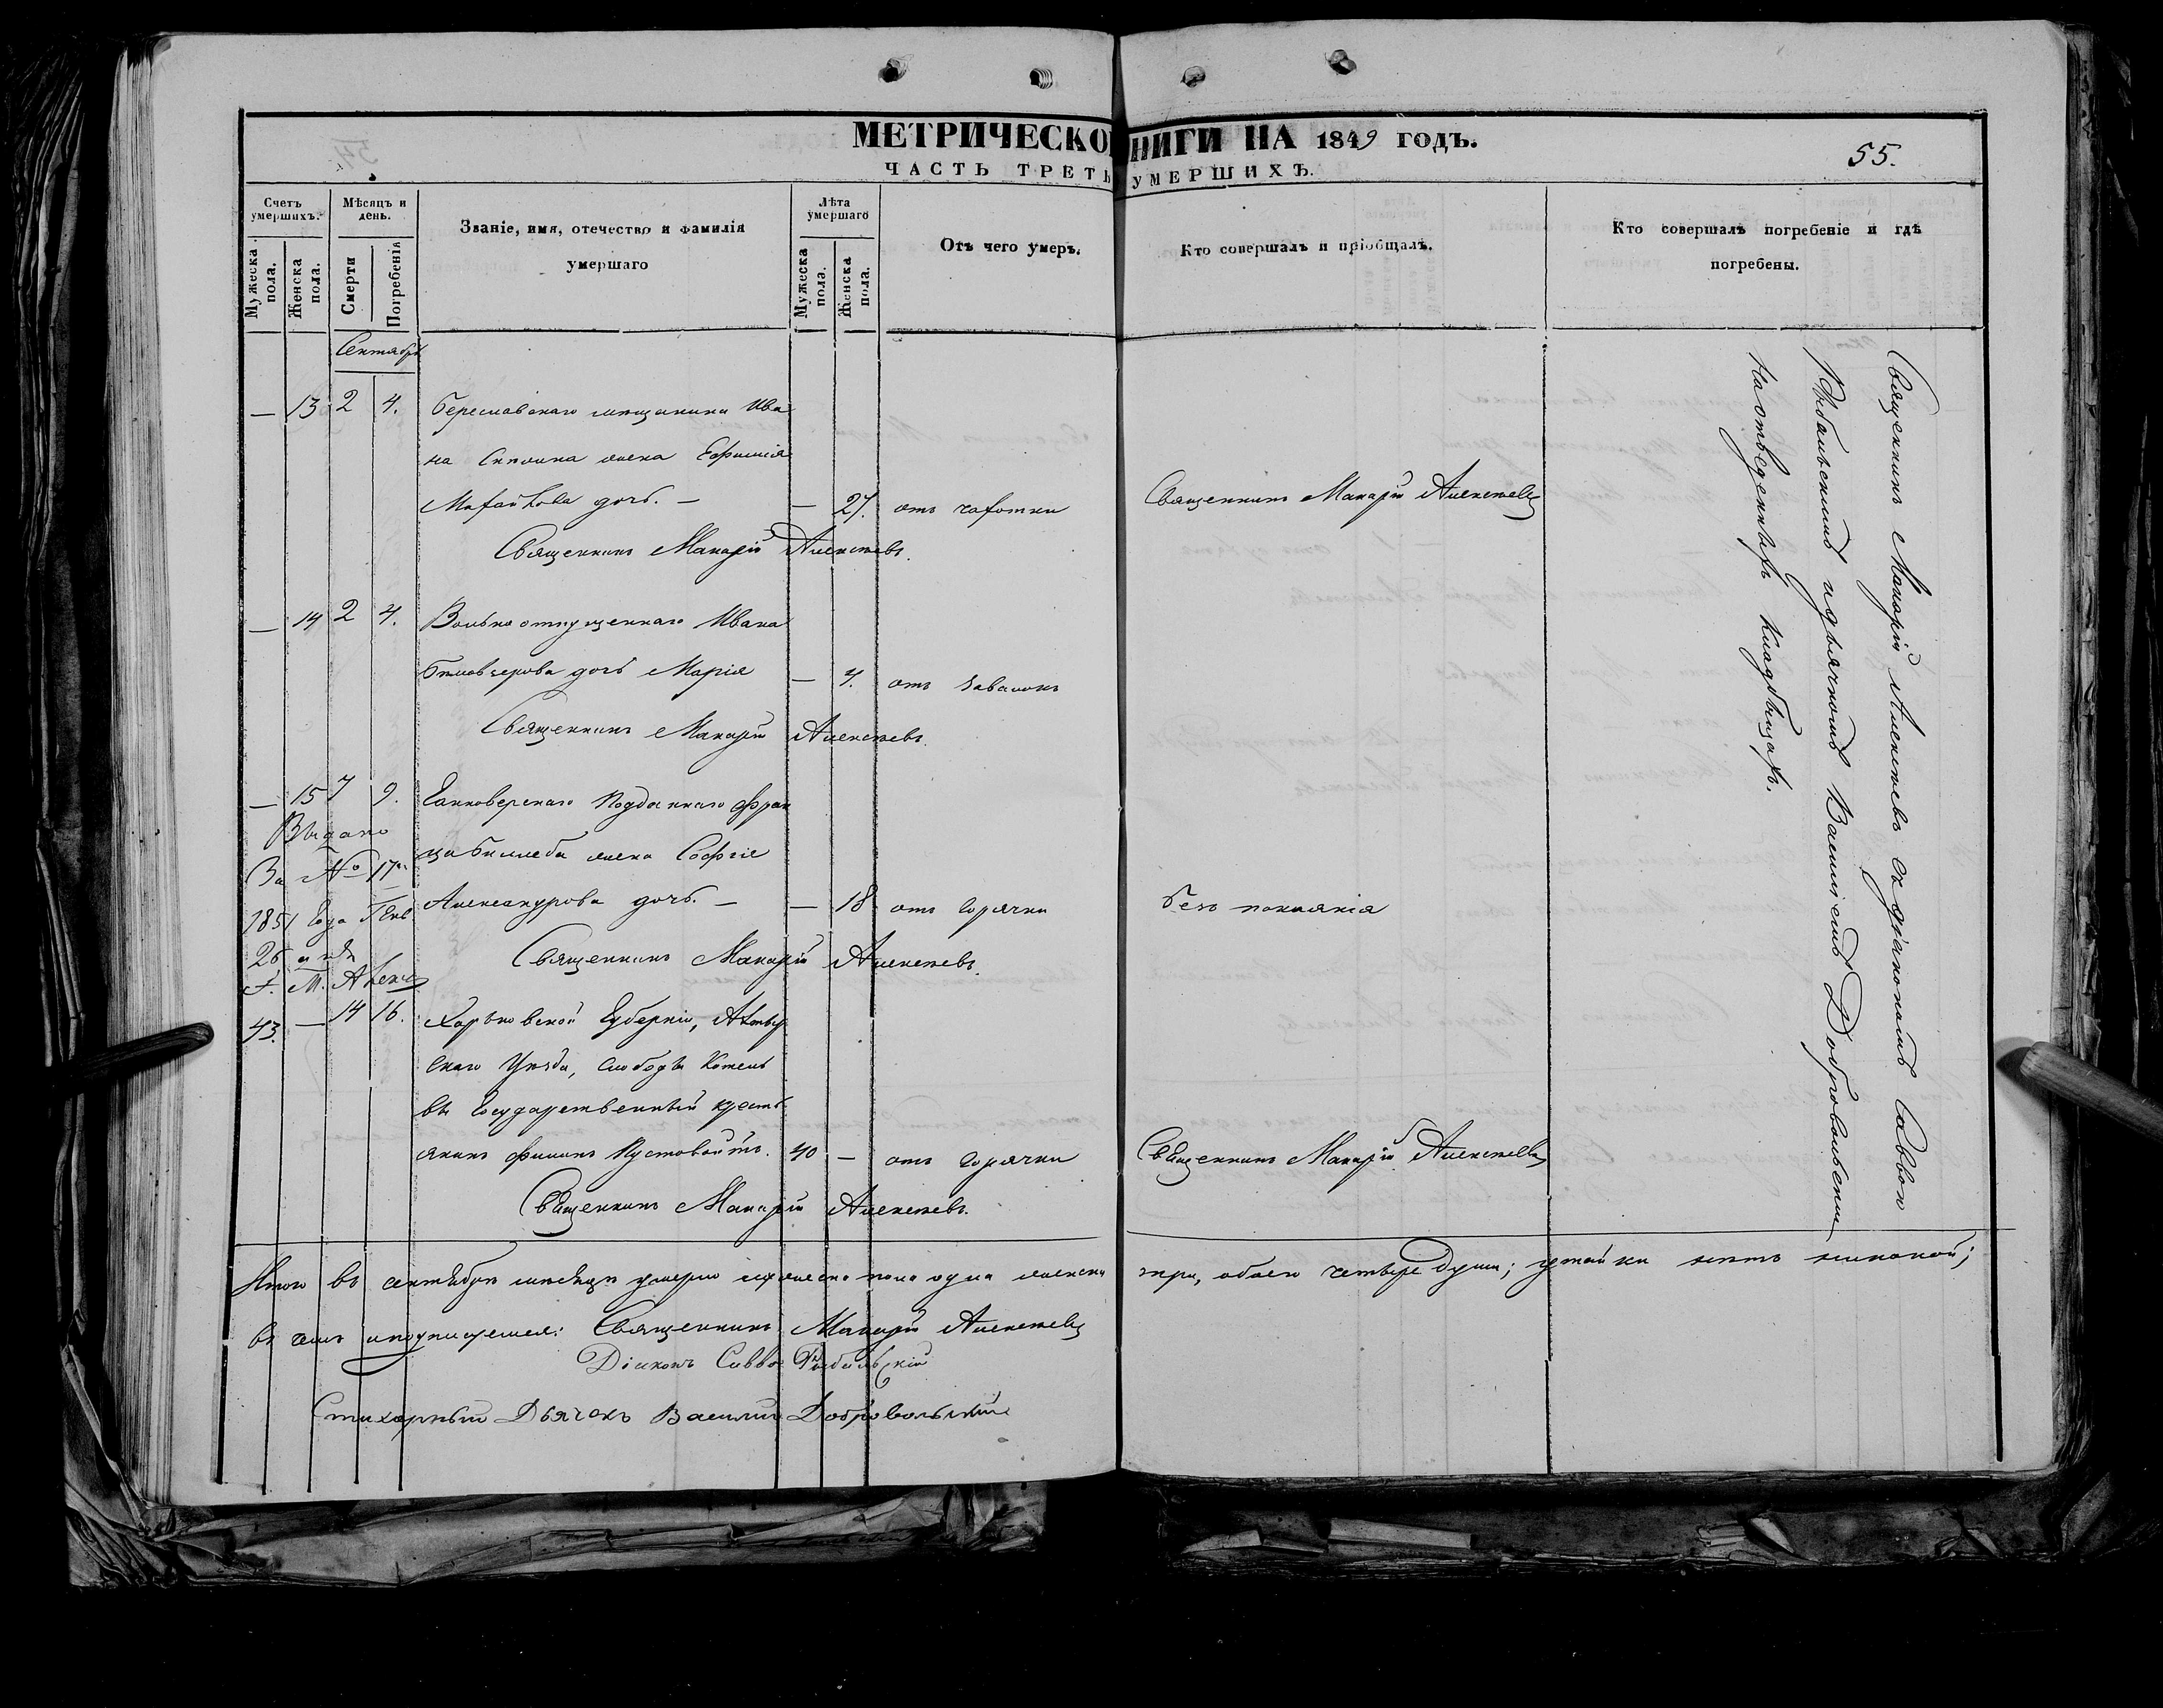 МЕТРИЧЕСКО НИГИ НА 1849 ГОДЪ.
ЧАСТЬ ТРЕТЬ УМЕРШИХЪ.
55.
Счетъ умершихъ.
Мужеска пола.
Женска пола.
Мѣсяцъ и день.
Смерти
Погребенія
Званіе, имя, отечество и фамилія
умершаго
Лѣта умершаго
Мужеска пола.
Женска пола.
Отъ чего умеръ.
Кто совершалъ и пріобщалъ.
Кто совершалъ погребеніе и гдѣ
погребены.
Сентябрь
— 13 2 4. Бериславскаго мещанина Ива
на жена Ефимія
дочь. — — 27. отъ чахотки Священникъ Макарій Алексѣевъ
Священникъ Макарій Алексѣевъ.
— 14 2 4. Вольноотпущеннаго Ивана
дочь Марія — 4. отъ завалокъ
Священникъ Макарій Алексѣевъ.
— 15 7 9. Ганноверскаго Подданнаго Фран
ца жена Софія
Александрова дочь. — — 18 отъ горячки безъ покаянія
Священникъ Макарій Алексѣевъ.
Выдано
За № 17
1851 Года Генв
26
С. М. Алекс
43. — 14 16. Харьковской Губерніи, Ахтыр
скаго Уѣзда, слободы Котель
вы Государственный кресть
янинъ Филипъ Пустовойтъ. 40 — отъ горячки Священникъ Макарій Алексѣевъ
Священникъ Макарій Алексѣевъ.
Священникъ Макарій Алексѣевъ съ діакономъ Саввою
Рыбальскимъ и дьячкомъ Василіемъ Добровольскимъ
На отведенныхъ кладбищахъ.
Итого въ сентябрѣ мѣсяцѣ умерло мужеска пола одна женска три, обоего четыре души; утайки нѣтъ никакой;
въ чемъ и подпишемся: Священникъ Макарій Алексѣевъ
Діаконъ Савва Рыбальскій
Стихарный Дьячекъ Василій Добровольскій